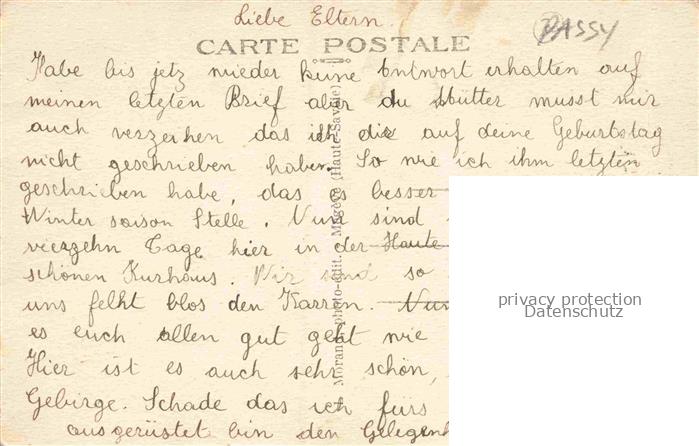 Liebe Eltern.
PASSY
CARTE POSTALE
Habe bis jetz wieder keine Antwort erhalten auf
meinen letzten Brief aber du Mutter musst mir
auch verzeihen das ich dir auf deine Geburtstag
nicht geschrieben habe. So wie ich ihm letzten
geschrieben habe, das es besser
Winter saison Stelle. Nun sind
vierzehn Tage hier in der Haute
schönen Kurhaus. Wir sind so
uns felht blos den Karren. Nun
es euch allen gut geht wie
Hier ist es auch sehr schön,
Gebirge. Schade das ich fürs
ausgerüstet bin den Gelegenh
Morand, photo-édit., Megève (Haute-Savoie)
privacy protection
Datenschutz